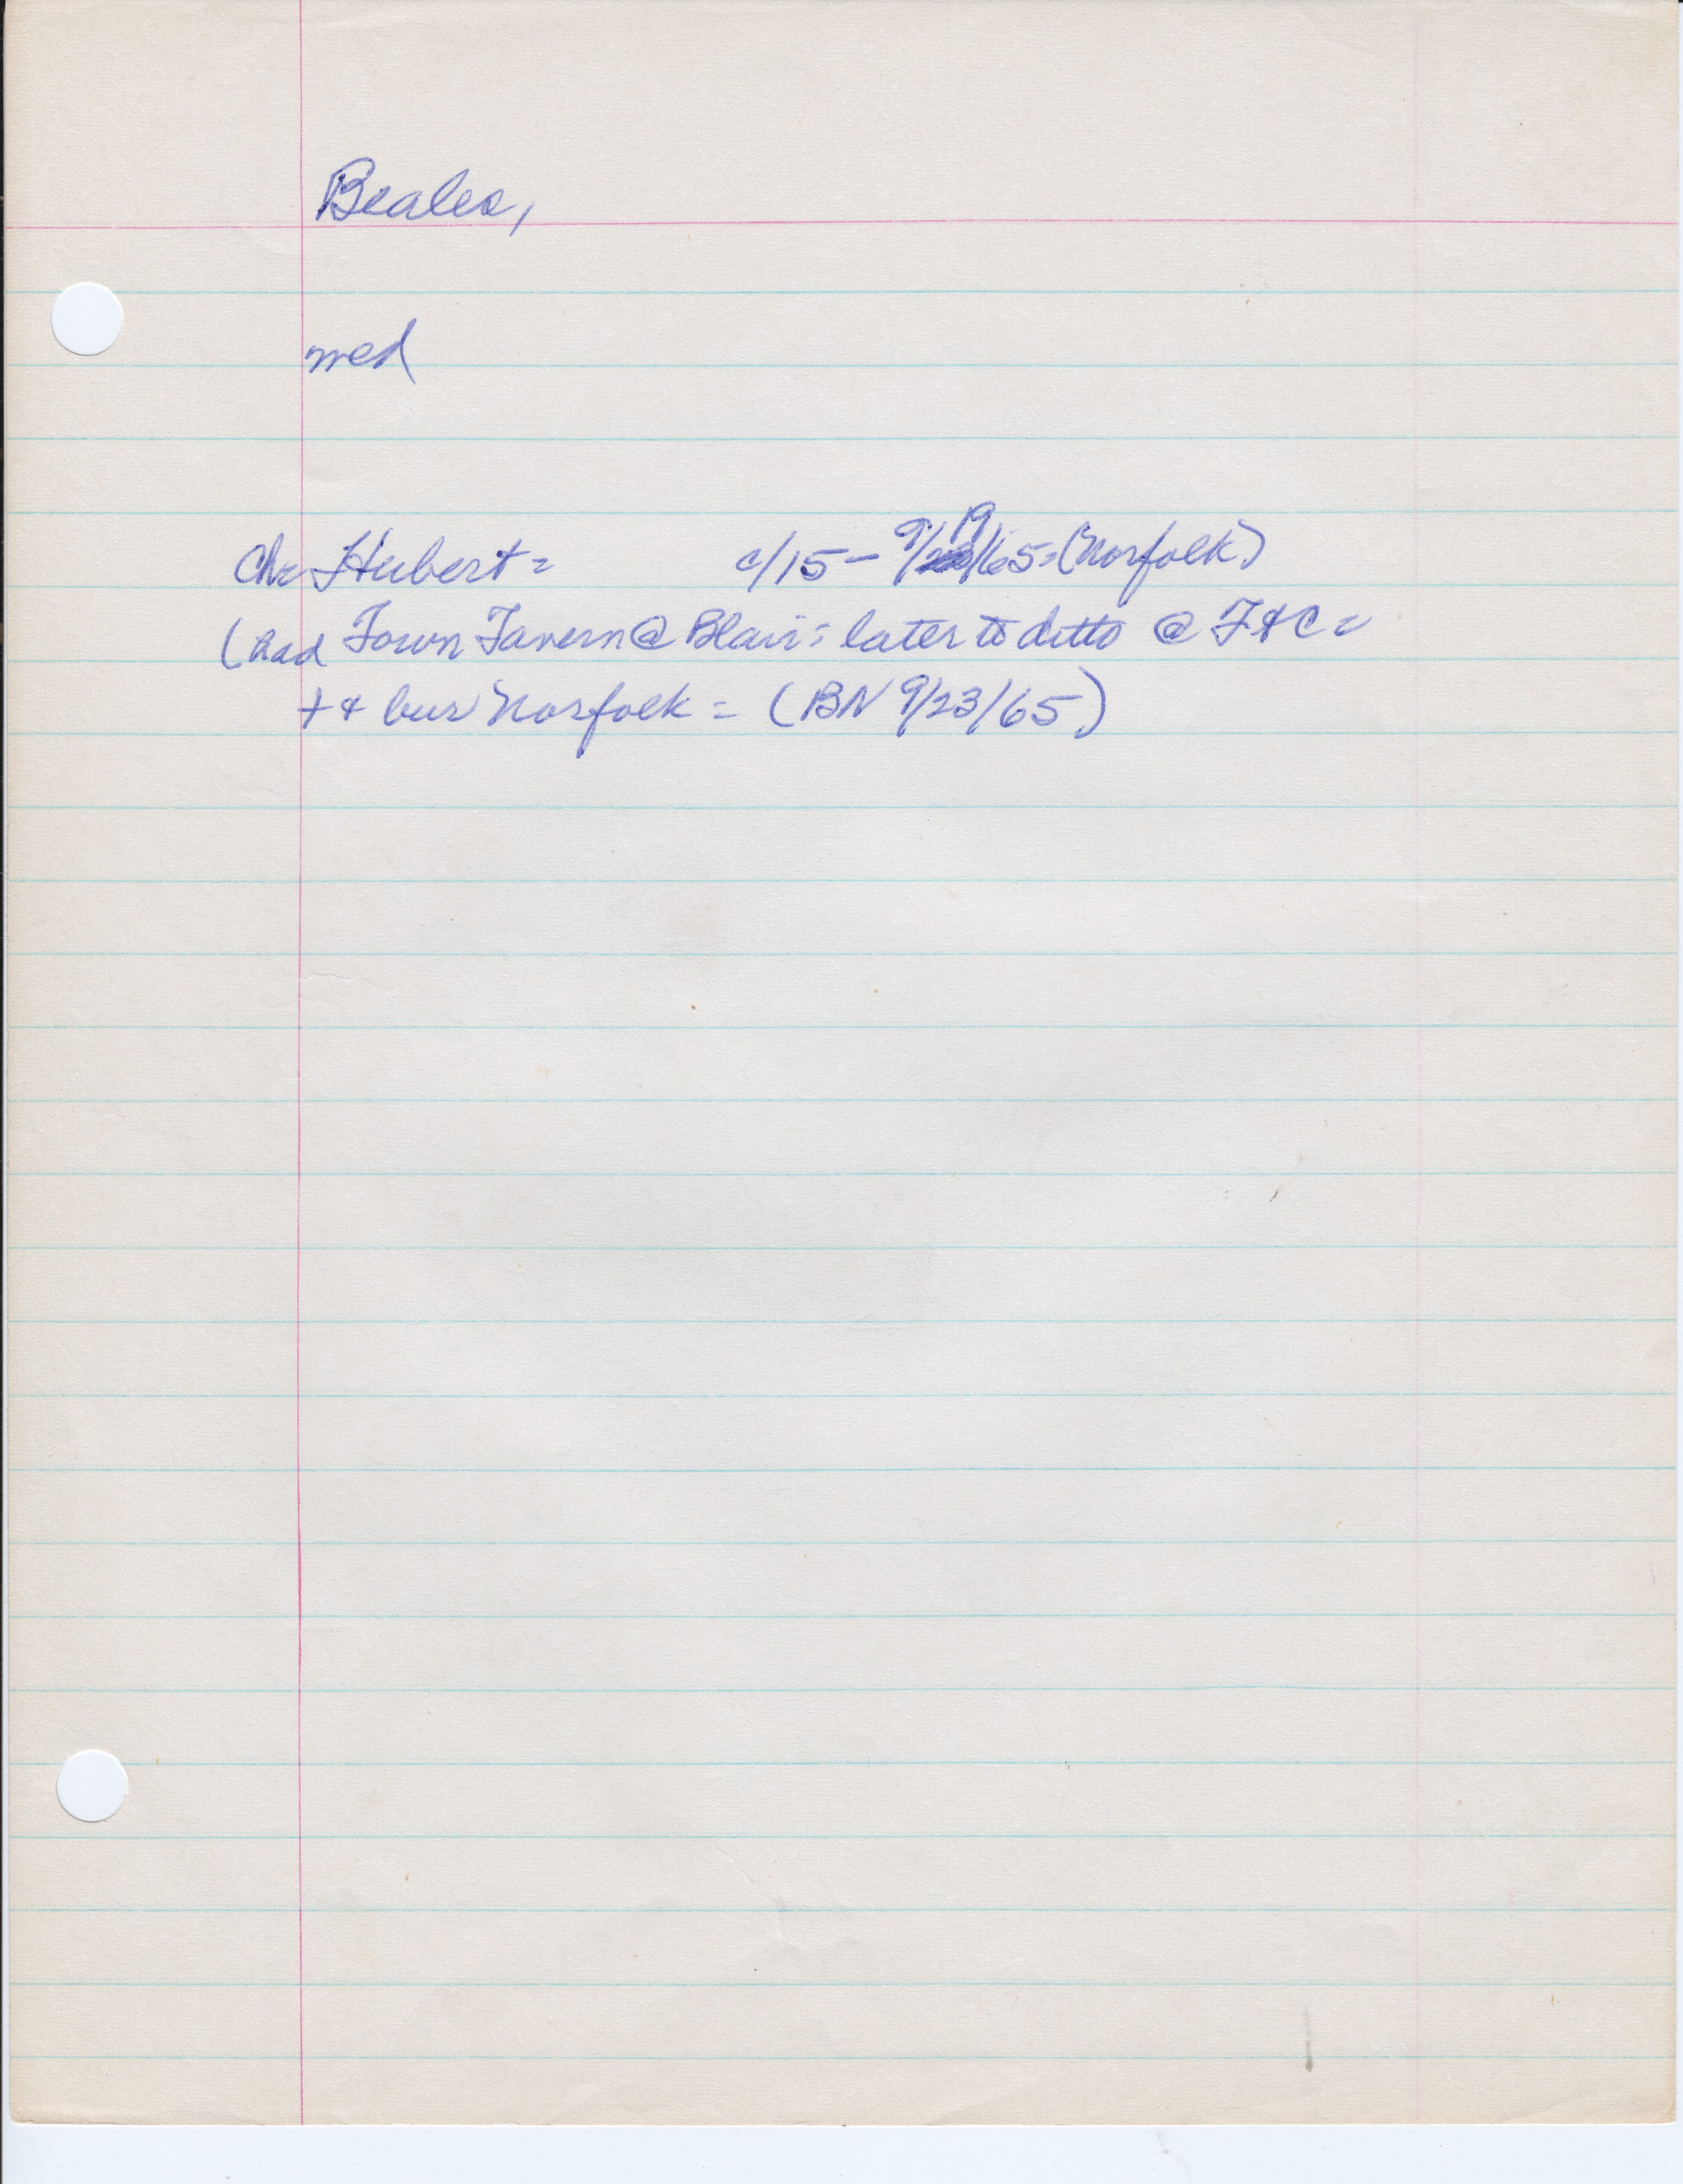 Beales,
med
Ch= Hubert = c/15 - 9/19/65 = (Norfolk)
(had Town Tavern @ Blair = later to ditto @ F&C =
+ & bur Norfolk = (BN 9/23/65)